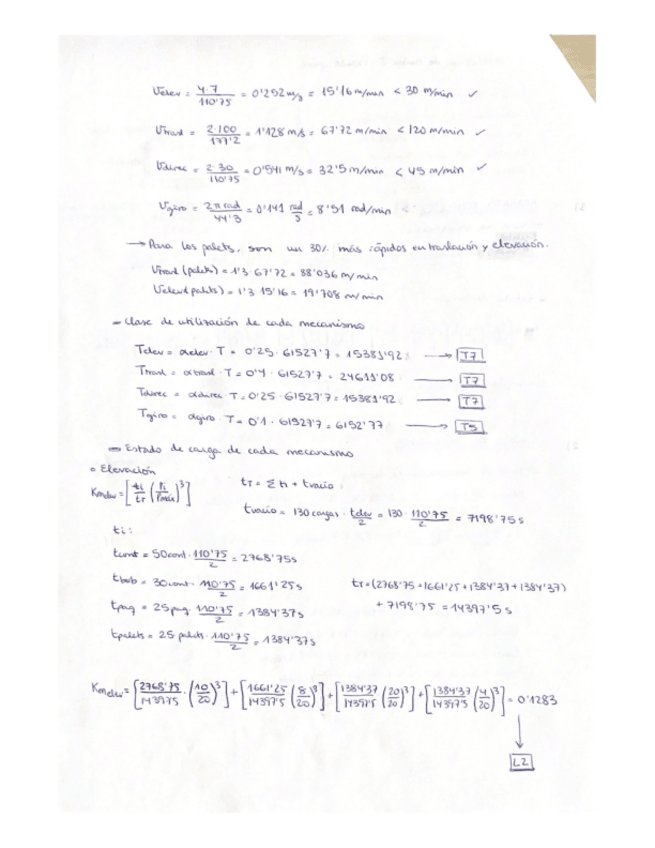 Velev = 4·7 / 110'75 = 0'252 m/s = 15'16 m/min < 30 m/min ✓
Vtrasl = 2·100 / 177'2 = 1'128 m/s = 67'72 m/min < 120 m/min ✓
Vdirec = 2·30 / 110'75 = 0'541 m/s = 32'5 m/min < 45 m/min ✓
Vgiro = 2π rad / 44'3 = 0'141 rad/s = 8'51 rad/min
→ Para los palets, son un 30% más rápidos en traslación y elevación.
Vtrasl (palets) = 1'3·67'72 = 88'036 m/min
Velev (palets) = 1'3·15'16 = 19'708 m/min
- Clase de utilización de cada mecanismo
Telev = αelev·T = 0'25·61527'7 = 15381'92 → T7
Ttrasl = αtrasl·T = 0'4·61527'7 = 24611'08 → T7
Tdirec = αdirec·T = 0'25·61527'7 = 15381'92 → T7
Tgiro = αgiro·T = 0'1·61527'7 = 6152'77 → T5
- Estado de carga de cada mecanismo
o Elevación
Kmelev = [ti/tT (Pi/Pmáx)^3] tT = Σti + tvacío
tvacío = 130 cargas·telev/2 = 130·110'75/2 = 7198'75 s
ti:
tcont = 50cont·110'75/2 = 2768'75s
tbob = 30cont·110'75/2 = 1661'25s tT = (2768'75+1661'25+1384'37+1384'37)
tpaq = 25paq·110'75/2 = 1384'37s + 7198'75 = 14397'5 s
tpalets = 25 palets·110'75/2 = 1384'37s
Kmelev = [2768'75/14397'5·(10/20)^3] + [1661'25/14397'5 (8/20)^3] + [1384'37/14397'5 (20/20)^3] + [1384'37/14397'5 (4/20)^3] = 0'1283
↓
L2